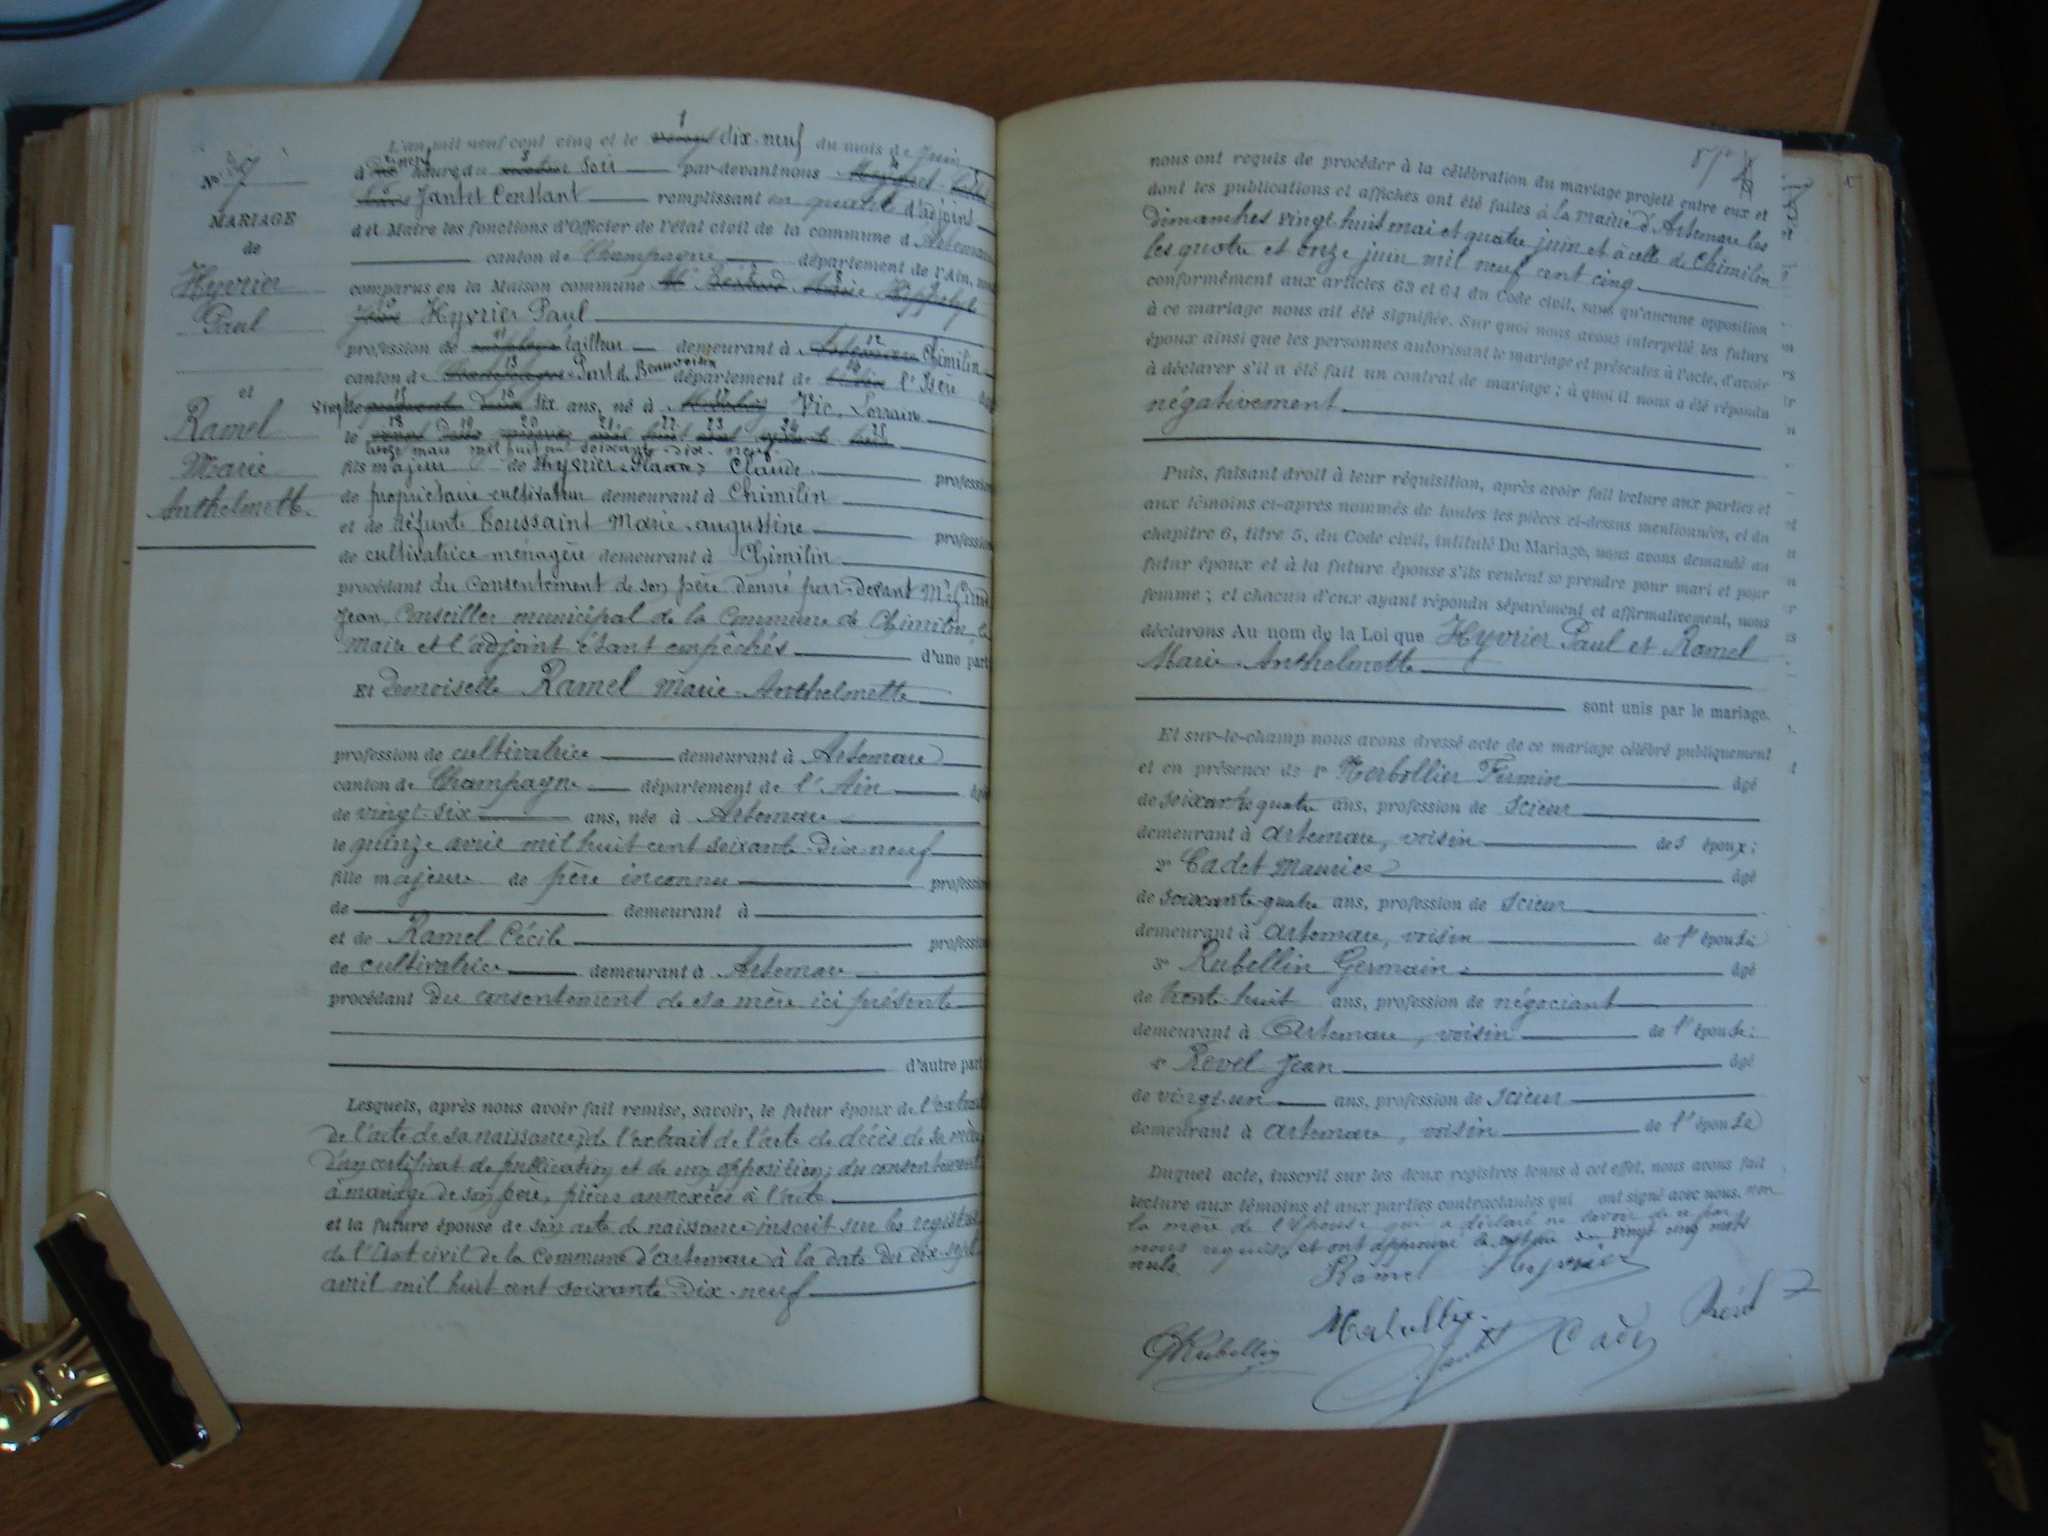 N° 7
MARIAGE
de
Hyvrier
Paul
et
Ramel
Marie
Anthelmette
L'an mil neuf cent cinq et le dix-neuf du mois de Juin
heures du soir par-devant nous
Jantet Constant remplissant en qualité d'adjoint
du Maire les fonctions d'Officier de l'état civil de la commune d'Artemare
canton de Champagne département de l'Ain, sont
comparus en la Maison commune
Hyvrier Paul
profession de tailleur demeurant à Chimilin
canton de Pont de Beauvoisin département de l'Isère âgé
vingt six ans, né à Vic, Lorrain
le
onze mars mil huit cent soixante-dix-neuf
fils majeur de Hyvrier Claude profession
de propriétaire-cultivateur demeurant à Chimilin
et de défunte Toussaint Marie-augustine profession
de cultivatrice ménagère demeurant à Chimilin
procédant du Consentement de son père donné par-devant Mr
Jean, Conseiller municipal de la Commune de Chimilin, le
Maire et l'adjoint étant empêchés d'une part
Et Demoiselle Ramel Marie-Anthelmette
profession de cultivatrice demeurant à Artemare
canton de Champagne département de l'Ain âgé
de vingt-six ans, née à Artemare
le quinze avril mil huit cent soixante-dix-neuf
fille majeure de père inconnu profession
de demeurant à
et de Ramel Cécile profession
de cultivatrice demeurant à Artemare
procédant du consentement de sa mère ici présente
d'autre part
Lesquels, après nous avoir fait remise, savoir, le futur époux de l'extrait
de l'acte de sa naissance, de l'extrait de l'acte de décès de sa mère
d'un certificat de publication et de non opposition; du consentement
à mariage de son père, pièces annexées à l'acte
et la future épouse de son acte de naissance inscrit sur les registres
de l'Etat civil de la Commune d'artemare à la date du dix-sept
avril mil huit cent soixante-dix-neuf
nous ont requis de procéder à la célébration du mariage projeté entre eux et
dont les publications et affiches ont été faites à la mairie d'Artemare les
dimanches vingt huit mai et quatre juin et à celle de Chimilin
les quatre et onze juin mil neuf cent cinq
conformément aux articles 63 et 64 du Code civil, sans qu'aucune opposition
à ce mariage nous ait été signifiée. Sur quoi nous avons interpellé les futurs
époux ainsi que les personnes autorisant le mariage et présentes à l'acte, d'avoir
à déclarer s'il a été fait un contrat de mariage ; à quoi il nous a été répondu
négativement
Puis, faisant droit à leur réquisition, après avoir fait lecture aux parties et
aux témoins ci-après nommés de toutes les pièces ci-dessus mentionnées, et du
chapitre 6, titre 5, du Code civil, intitulé Du Mariage, nous avons demandé au
futur époux et à la future épouse s'ils veulent se prendre pour mari et pour
femme ; et chacun d'eux ayant répondu séparément et affirmativement, nous
déclarons Au nom de la Loi que Hyvrier Paul et Ramel
Marie-Anthelmette
sont unis par le mariage.
Et sur-le-champ nous avons dressé acte de ce mariage célébré publiquement
et en présence de 1° Morbollier Firmin âgé
de soixante quatre ans, profession de scieur
demeurant à artemare, voisin des époux;
2° Cadet Maurice âgé
de soixante-quatre ans, profession de scieur
demeurant à artemare, voisin de l'épouse
3° Rubellin Germain âgé
de trente-huit ans, profession de négociant
demeurant à Artemare, voisin de l'épouse;
4° Revel Jean âgé
de vingt-un ans, profession de scieur
demeurant à artemare, voisin de l'épouse
Duquel acte, inscrit sur les deux registres tenus à cet effet, nous avons fait
lecture aux témoins et aux parties contractantes qui ont signé avec nous, non
la mère de l'épouse qui a déclaré ne savoir de ce par
nous requise, et ont approuvé vingt cinq mots
nuls.
Ramel Hyvrier
GRubellin Jantet Cadet